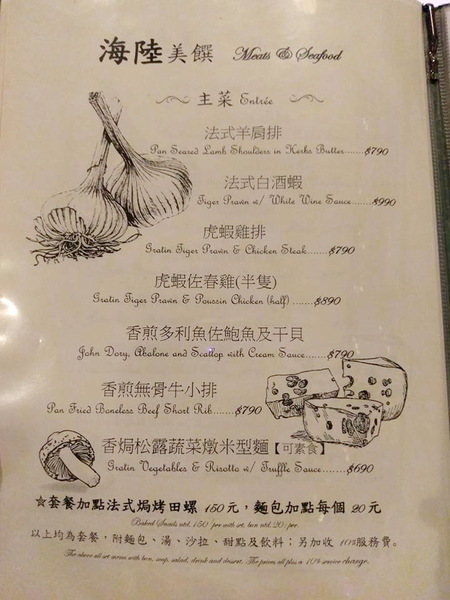 海陸美饌 Meats & Seafood
主菜 Entrée
法式羊肩排
Pan Seared Lamb Shoulders in Herbs Butter.......$790
法式白酒蝦
Tiger Prawn w/ White Wine Sauce......$990
虎蝦雞排
Gratin Tiger Prawn & Chicken Steak.......$790
虎蝦佐春雞(半隻)
Gratin Tiger Prawn & Poussin Chicken (half) .......$890
香煎多利魚佐鮑魚及干貝
John Dory, Abalone and Scallop with Cream Sauce......$790
香煎無骨牛小排
Pan Fried Boneless Beef Short Rib.......$790
香焗松露蔬菜燉米型麵【可素食】
Gratin Vegetables & Risotto w/ Truffle Sauce.......$690
☆套餐加點法式焗烤田螺 150元，麵包加點每個 20元
Baked Snails ntd. 150/ per with set, bun ntd. 20/ per.
以上均為套餐，附麵包、湯、沙拉、甜點及飲料；另加收 10%服務費。
The above all set menu with bun, soup, salad, drink and dessert. The prices all plus a 10% service charge.